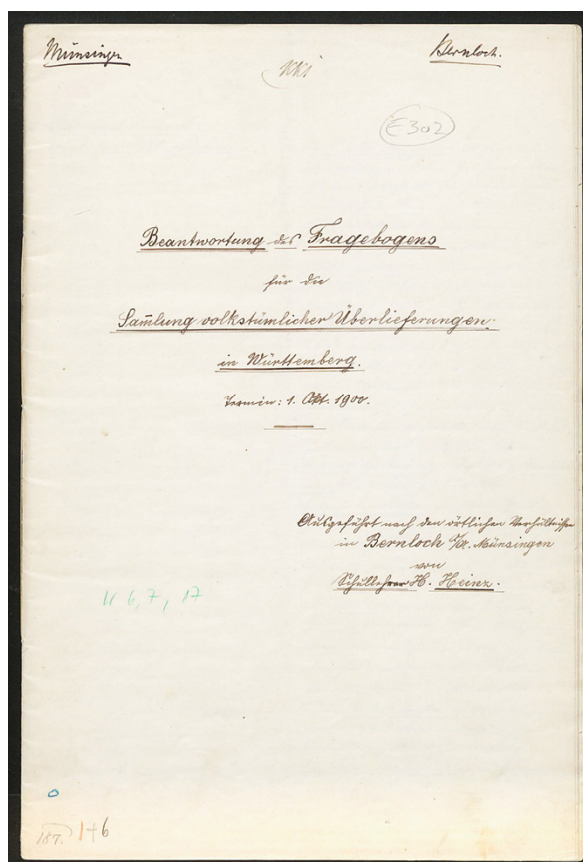 Münsingen
Bernloch.
E302
Beantwortung des Fragebogens
für die
Sam̄lung volkstümlicher Überlieferungen
in Württemberg.
Termin: 1. Okt. 1900.
Ausgeführt nach den örtlichen Verhältnissen
in Bernloch O/A. Münsingen
von
Schullehrer H. Heinz.
6, 7, 17
187. 1+6